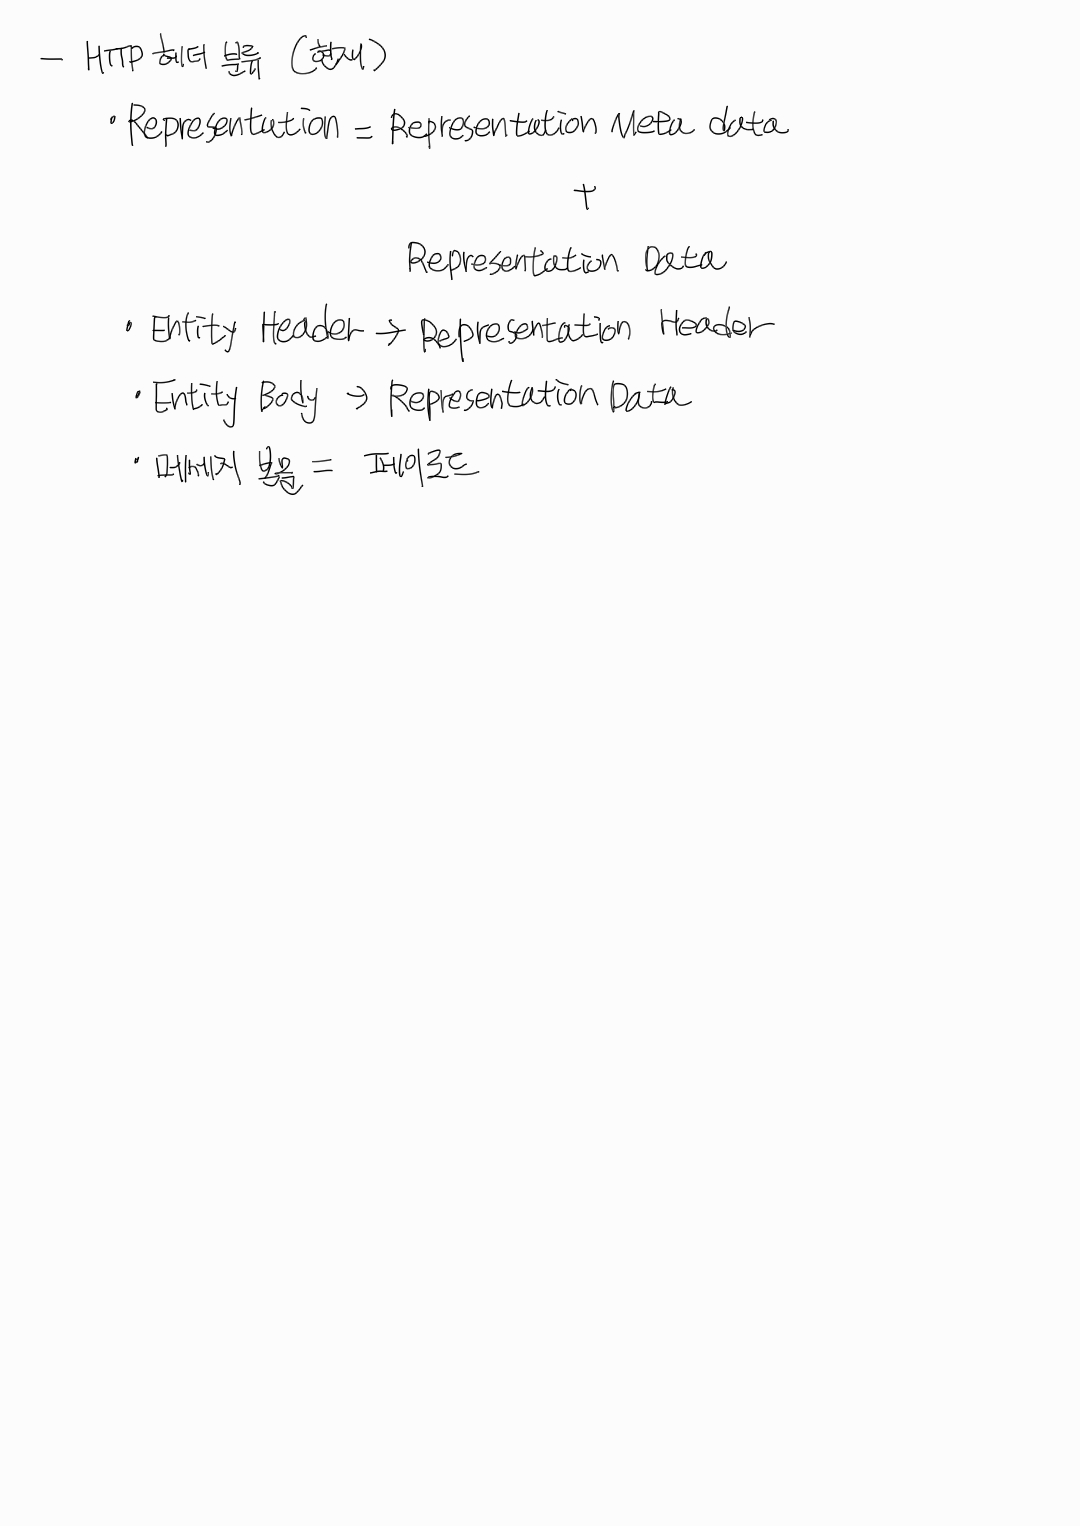 - HTTP 헤더 분류 (현재)
• Representation = Representation Meta data
+
Representation Data
• Entity Header → Representation Header
• Entity Body → Representation Data
• 메세지 본문 = 페이로드